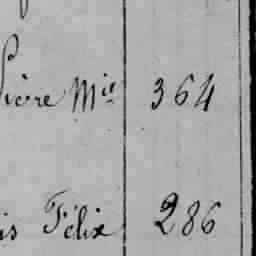 Pierre Mie 364
is Félix 286